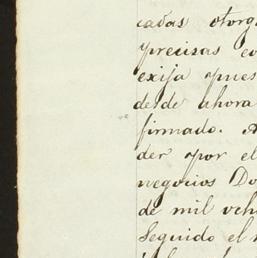 cadas otorg
precisas co
exija pues
desde ahora
firmado. A
der por el
negocios Do
de mil och
Seguido el